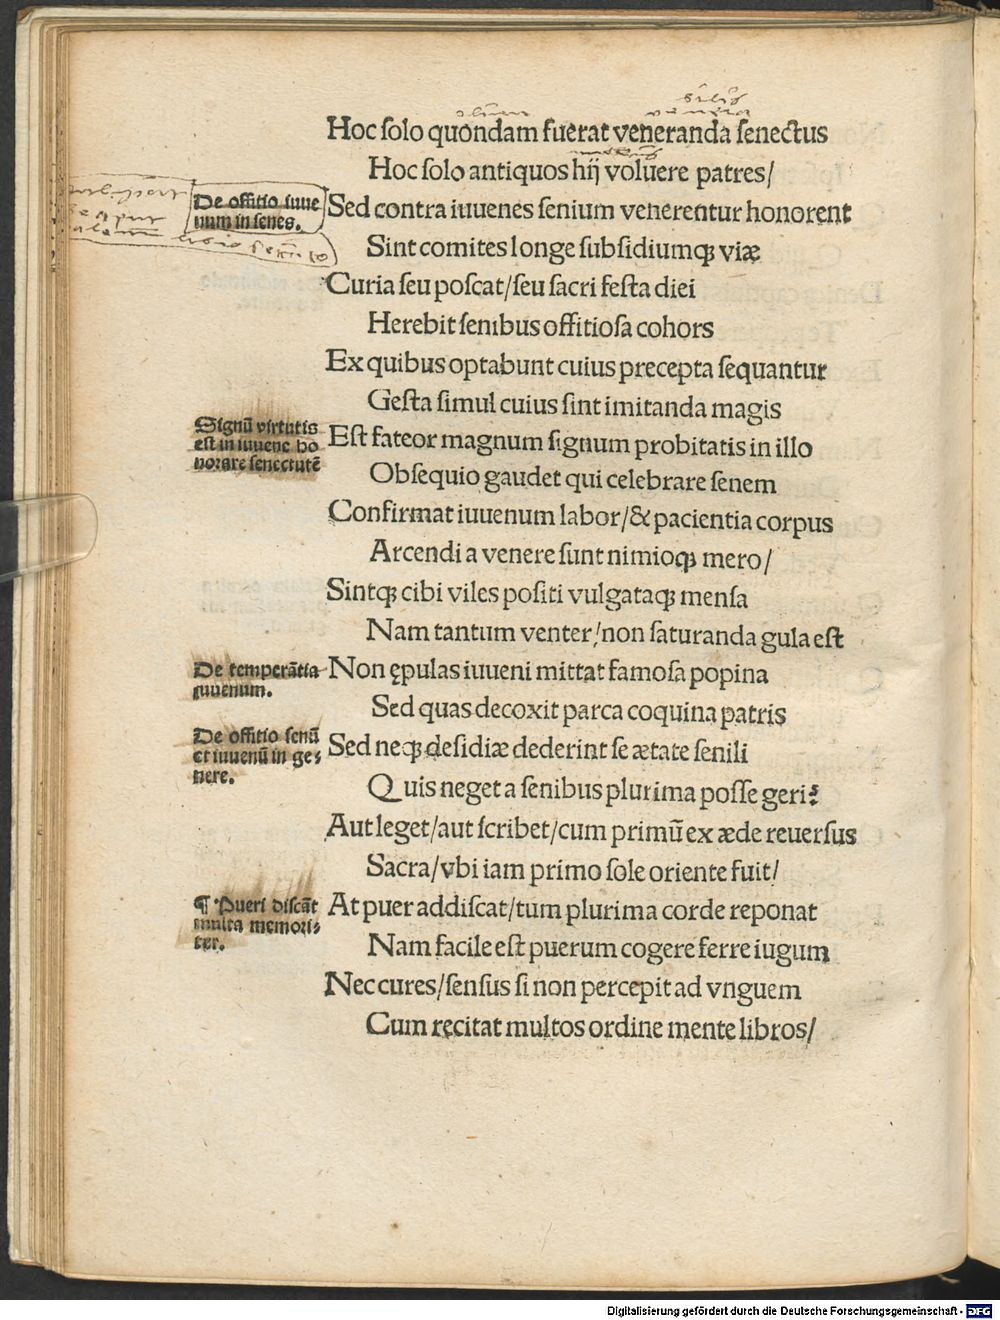 olim
Hoc ſolo quondam fuerat veneranda ſenectus
Hoc ſolo antiquos hij voluere patres/
De offitio iuue
num in ſenes.
Sed contra iuuenes ſenium venerentur honorent
Sint comites longe ſubſidiumqꝫ viæ
Curia ſeu poſcat/ſeu ſacri feſta diei
Herebit ſenibus offitioſa cohors
Ex quibus optabunt cuius precepta ſequantur
Geſta ſimul cuius ſint imitanda magis
Signū virtutis
eſt in iuuene ho
norare ſenectutē
Eſt fateor magnum ſignum probitatis in illo
Obſequio gaudet qui celebrare ſenem
Confirmat iuuenum labor/& pacientia corpus
Arcendi a venere ſunt nimioqꝫ mero/
Sintqꝫ cibi viles poſiti vulgataqꝫ menſa
Nam tantum venter/non ſaturanda gula eſt
De temperātia
iuuenum.
Non ępulas iuueni mittat famoſa popina
Sed quas decoxit parca coquina patris
De offitio ſenū
et iuuenū in ge⸗
nere.
Sed neqꝫ deſidiæ dederint ſe ætate ſenili
Quis neget a ſenibus plurima poſſe geri?
Aut leget/aut ſcribet/cum primū ex æde reuerſus
Sacra/vbi iam primo ſole oriente fuit/
¶ Pueri diſcāt
multa memori⸗
ter.
At puer addiſcat/tum plurima corde reponat
Nam facile eſt puerum cogere ferre iugum
Nec cures/ſenſus ſi non percepit ad vnguem
Cum recitat multos ordine mente libros/
Digitalisierung gefördert durch die Deutsche Forschungsgemeinschaft - DFG